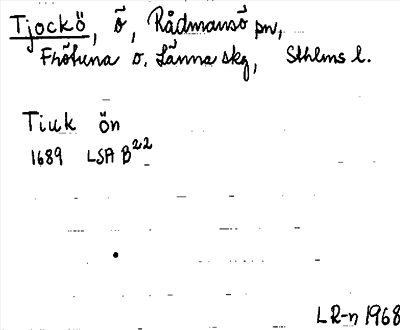 Tjockö, ö, Rådmansö pn,
Frötuna o. Länna skg, Sthlms l.
Tiuk ön
1689 LSA B22
LR-n 1968